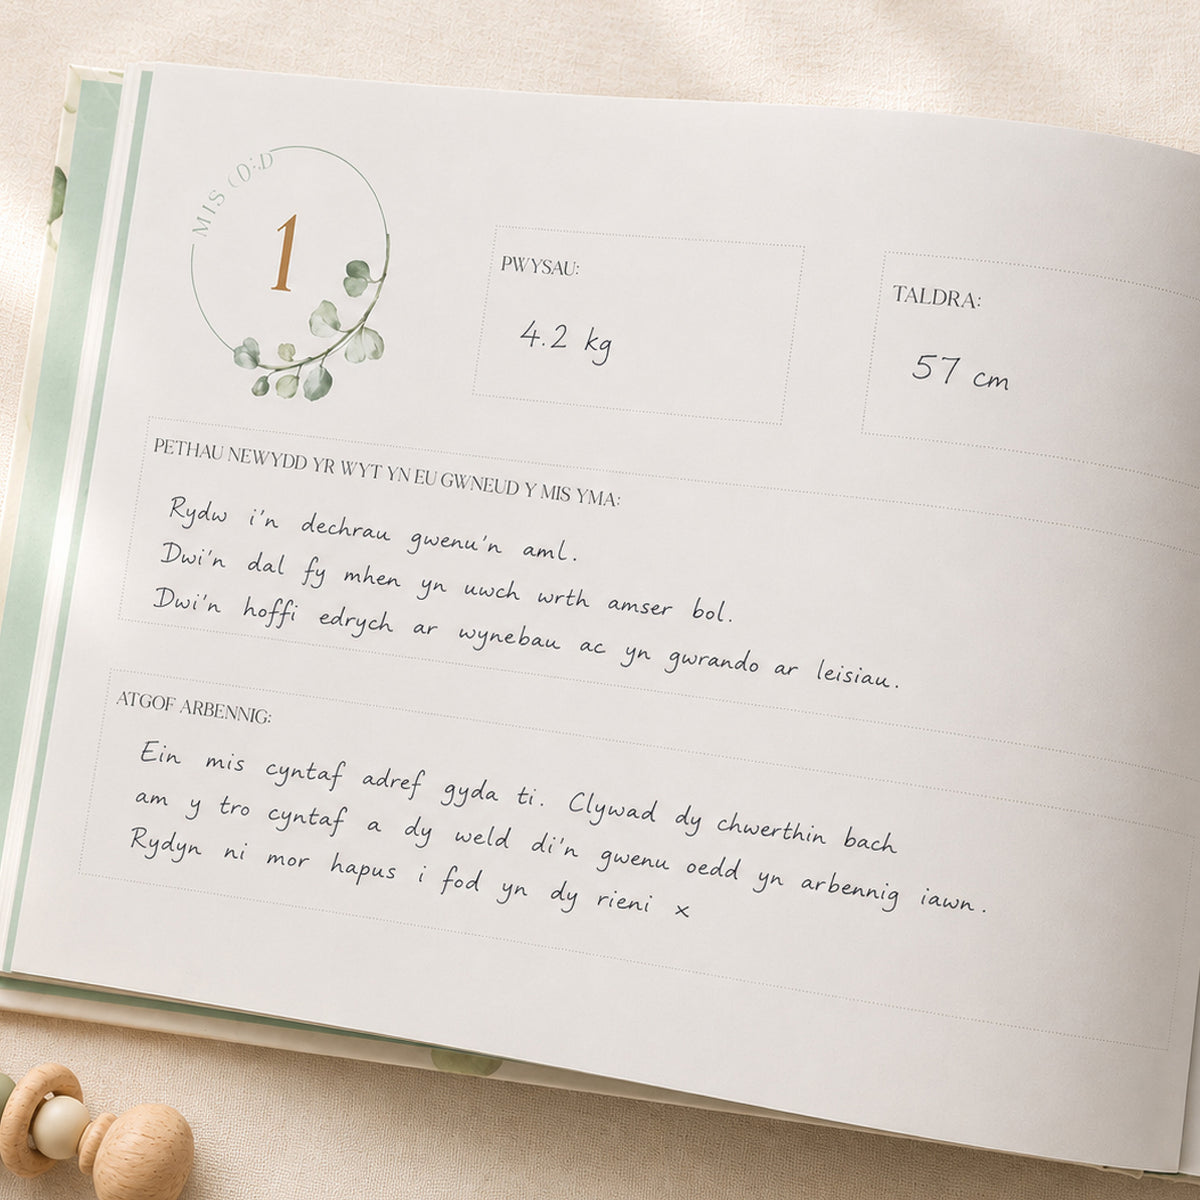 MIS
1
PWYSAU:
4.2 kg
TALDRA:
57 cm
PETHAU NEWYDD YR WYT YN EU GWNEUD Y MIS YMA:
Rydw i'n dechrau gwenu'n aml.
Dwi'n dal fy mhen yn uwch wrth amser bol.
Dwi'n hoffi edrych ar wynebau ac yn gwrando ar leisiau.
ATGOF ARBENNIG:
Ein mis cyntaf adref gyda ti. Clywad dy chwerthin bach
am y tro cyntaf a dy weld di'n gwenu oedd yn arbennig iawn.
Rydyn ni mor hapus i fod yn dy rieni x